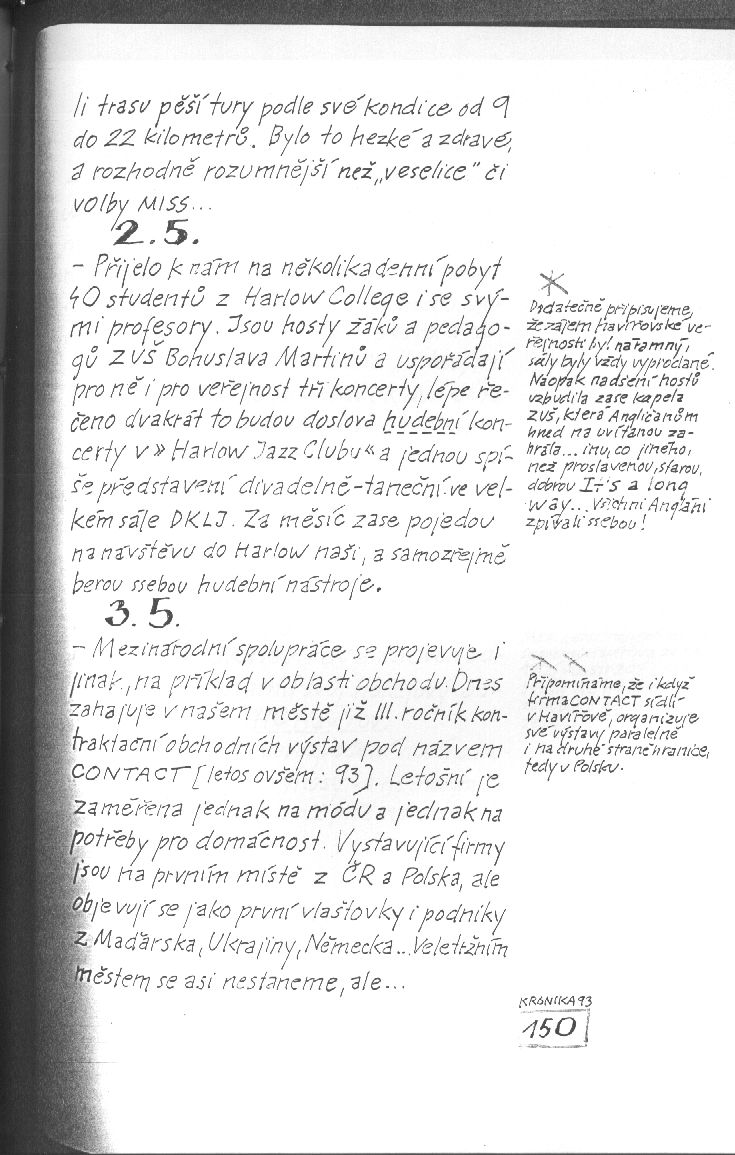 li trasu pěší túry podle své kondice od 9
do 22 kilometrů. Bylo to hezké a zdravé,
a rozhodně rozumnější než „veselice" či
volby MISS...
2.5.
– Přijelo k nám na několikadenní pobyt
40 studentů z Harlow College i se svý-
mi profesory. Jsou hosty žáků a pedago-
gů ZUŠ Bohuslava Martinů a uspořádají
pro ně i pro veřejnost tři koncerty, lépe ře-
čeno dvakrát to budou doslova hudební kon-
certy v » Harlow Jazz Clubu « a jednou spí-
še představení divadelně-taneční ve vel-
kém sále DKLJ. Za měsíc zase pojedou
na návštěvu do Harlow naši, a samozřejmě
berou ssebou hudební nástroje.
3.5.
– Mezinárodní spolupráce se projevuje i
jinak, na příklad v oblasti obchodu. Dnes
zahajuje v našem městě již III. ročník kon-
traktační obchodních výstav pod názvem
CONTACT [letos ovšem: 93]. Letošní je
zaměřena jednak na módu a jednak na
potřeby pro domácnost. Vystavující firmy
jsou na prvním místě z ČR a Polska, ale
objevují se jako první vlaštovky i podniky
z Maďarska, Ukrajiny, Německa... Veletržním
městem se asi nestaneme, ale...
*
Dodatečně připisujeme,
že zájem havířovské ve-
řejnosti byl náramný,
sály byly vždy vyprodané.
Naopak nadšení hostů
vzbudila zase kapela
ZUŠ, která Angličanům
hned na uvítanou za-
hrála... inu, co jiného,
než proslavenou, starou,
dobrou It's a long
way... Všichni Angláni
zpívali ssebou!
* *
Připomínáme, že i když
firma CONTACT sídlí
v Havířově, organizuje
své výstavy paralelně
i na druhé straně hranice,
tedy v Polsku.
KRONIKA 93
150